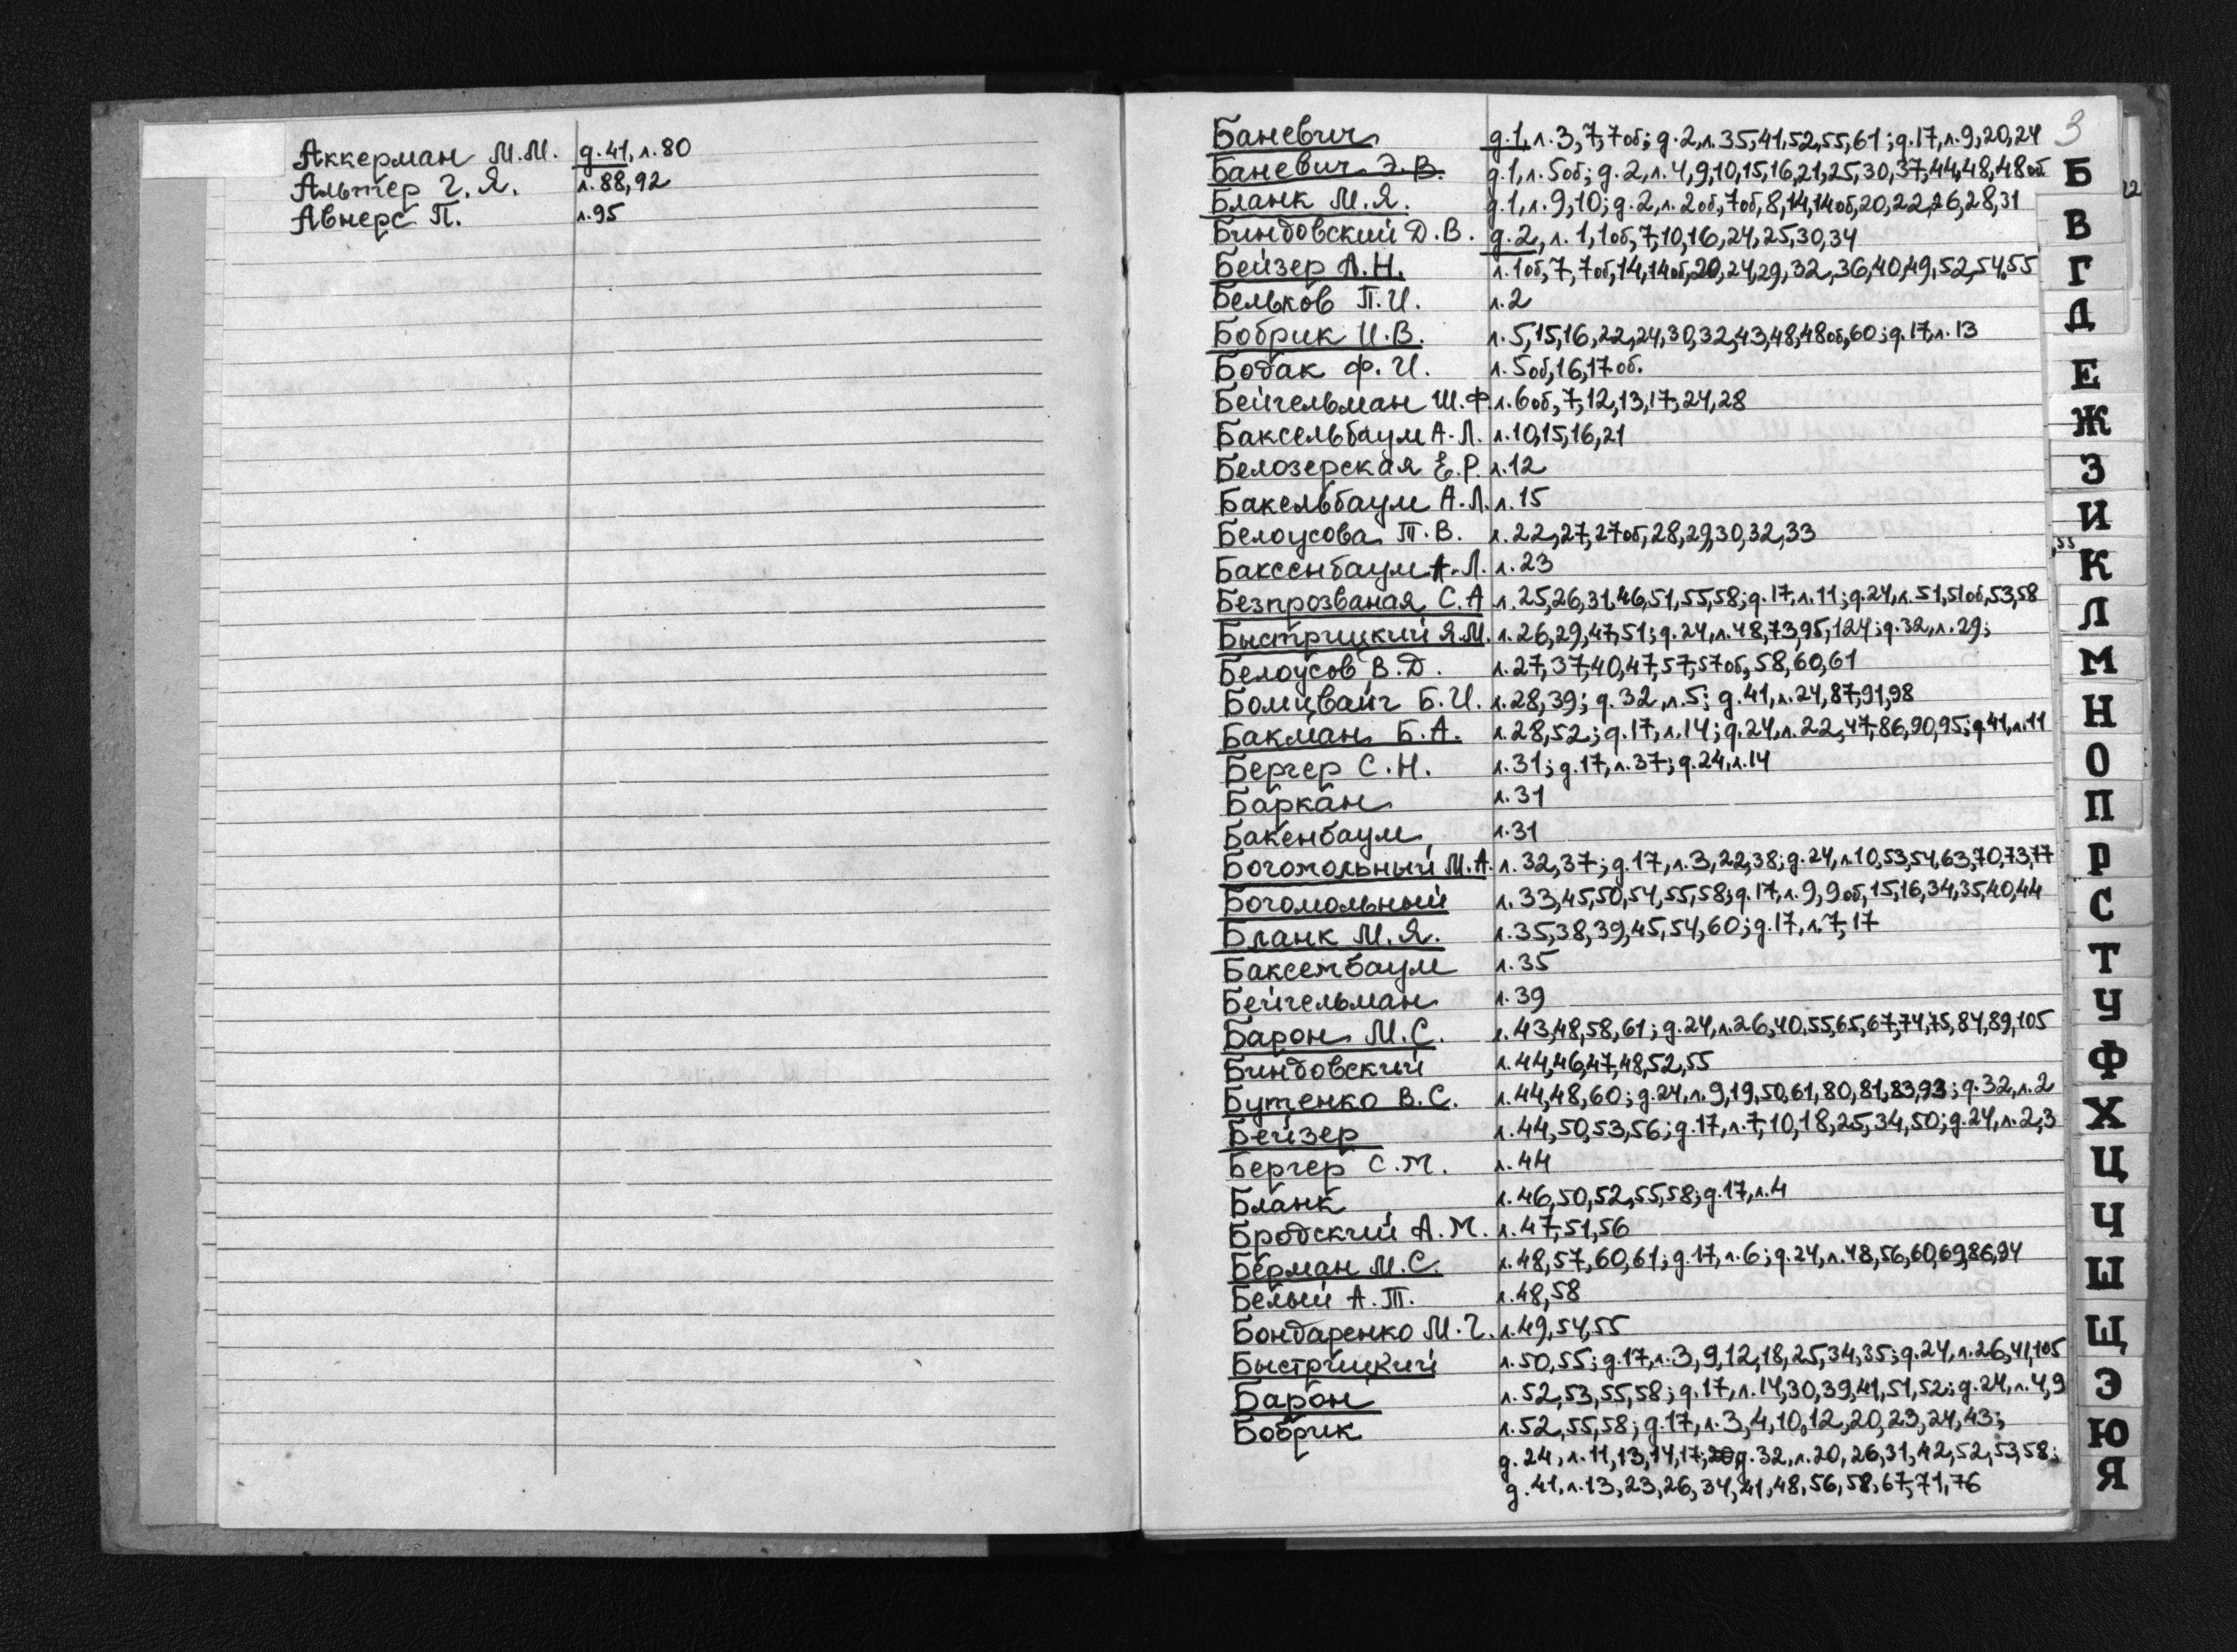 Аккерман М.М. д.41, л.80
Альтер Г.Я. л.88,92
Авнерс П. л.95
3
Баневич д.1, л.3,7,7об; д.2, л.35,41,52,55,61; д.17, л.9,20,24
Баневич Э.В. д.1, л.5об; д.2, л.4,9,10,15,16,21,25,30,37,44,48,48об
Бланк М.Я. д.1, л.9,10; д.2, л.2об,7об,8,14,14об,20,22,26,28,31
Биндовский Д.В. д.2, л.1,1об,7,10,16,24,25,30,34
Бейзер А.Н. л.1об,7,7об,14,14об,20,24,29,32,36,40,49,52,54,55
Бельков П.И. л.2
Бобрик И.В. л.5,15,16,22,24,30,32,43,48,48об,60; д.17, л.13
Бодак Ф.И. л.5об,16,17об.
Бейгельман Ш.Ф. л.6об,7,12,13,17,24,28
Баксельбаум А.Л. л.10,15,16,21
Белозерская Е.Р. л.12
Бакельбаум А.Л. л.15
Белоусова Т.В. л.22,27,27об,28,29,30,32,33
Баксенбаум А.Л. л.23
Безпрозваная С.А л.25,26,31,46,51,55,58; д.17, л.11; д.24, л.51,51об,53,58
Быстрицкий Я.М. л.26,29,47,51; д.24, л.48,73,95,124; д.32, л.29;
Белоусов В.Д. л.27,37,40,47,57,57об,58,60,61
Бомцвайг Б.И. л.28,39; д.32, л.5; д.41, л.24,87,91,98
Бакман Б.А. л.28,52; д.17, л.14; д.24, л.22,47,86,90,95; д.41, л.11
Бергер С.Н. л.31; д.17, л.37; д.24, л.14
Баркан л.31
Бакенбаум л.31
Богомольный М.А. л.32,37; д.17, л.3,22,38; д.24, л.10,53,54,63,70,73,77
Богомольный л.33,45,50,54,55,58; д.17, л.9,9об,15,16,34,35,40,44
Бланк М.Я. л.35,38,39,45,54,60; д.17, л.7,17
Баксембаум л.35
Бейгельман л.39
Барон М.С. л.43,48,58,61; д.24, л.26,40,55,65,67,74,75,84,89,105
Биндовский л.44,46,47,48,52,55
Бутенко В.С. л.44,48,60; д.24, л.9,19,50,61,80,81,83,93; д.32, л.2
Бейзер л.44,50,53,56; д.17, л.7,10,18,25,34,50; д.24, л.2,3
Бергер С.М. л.44
Бланк л.46,50,52,55,58; д.17, л.4
Бродский А.М. л.47,51,56
Берман М.С. л.48,57,60,61; д.17, л.6; д.24, л.48,56,60,69,86,94
Белый А.Т. л.48,58
Бондаренко М.Г. л.49,54,55
Быстрицкий л.50,55; д.17, л.3,9,12,18,25,34,35; д.24, л.26,41,105
Барон л.52,53,55,58; д.17, л.14,30,39,41,51,52; д.24, л.4,9
Бобрик л.52,55,58; д.17, л.3,4,10,12,20,23,24,43;
д.24, л.11,13,14,17; д.32, л.20,26,31,42,52,53,58;
д.41, л.13,23,26,34,41,48,56,58,67,71,76
Б
В
Г
Д
Е
Ж
З
И
К
Л
М
Н
О
П
Р
С
Т
У
Ф
Х
Ц
Ч
Ш
Щ
Э
Ю
Я